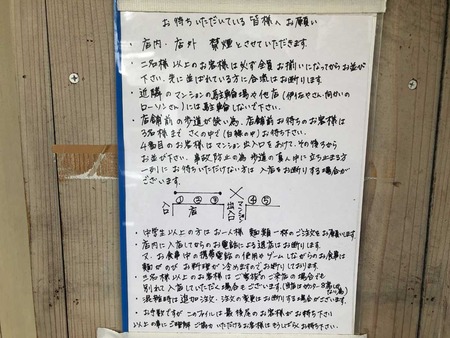 お待ちいただいている皆様へお願い
・店内・店外 禁煙とさせていただきます。
・二名様以上のお客様は必ず全員お揃いになってからお並び
下さい。先に並ばれている方に合流はお断りします。
・近隣のマンションの駐輪場や他店(伊佐さん・向かいの
ローソンさん)には駐輪しないで下さい。
・店舗前の歩道が狭い為、店舗前お待ちのお客様は
3名様まで さくの中で(白線の中)お待ち下さい。
4番目のお客様はマンション出入口をあけて、その後ろから
お並び下さい。事故防止の為歩道の真ん中に立ち止まる方
一列にお待ちいただけない方は入店をお断りする場合が
ございます。
入口 ① ② ③ 店 × マンション出入口 ④ ⑤
・中学生以上の方はお一人様 麺類一杯のご注文をお願いします。
・店内に入店してからのお電話による退店はお断りします。
又、お食事中の携帯電話の使用やゲームしながらのお食事は
麺がのび お料理が冷めますのでお断りしております。
・二名様以上のお客様はご家族のご来店の場合でも
別れて入店していただく場合もございます。
・混雑時は追加注文・注文の変更はお断りする場合がございます。
・お手数ですが このファイルは最後尾のお客様がお持ち下さい
以上の事にご理解ご協力いただけるお客様はもうしばらくお待ち下さい。